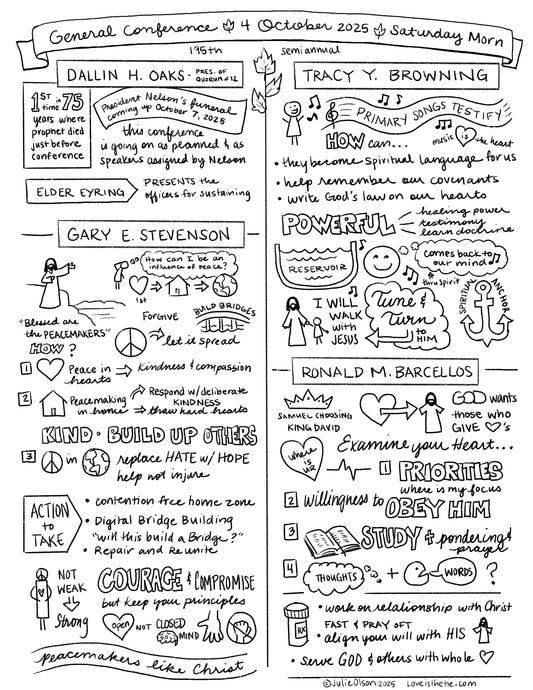 General Conference 4 October 2025 Saturday Morn
195th semiannual
DALLIN H. OAKS - PRES. OF QUORUM of 12
1ST time in 75 years where prophet died just before conference
President Nelson's funeral
coming up October 7, 2025
this conference
is going on as planned & as
speakers assigned by Nelson
ELDER EYRING
PRESENTS the
officers for sustaining
GARY E. STEVENSON
How can I be an
influence of peace?
1st
"Blessed are
the PEACEMAKERS"
FORGIVE
BUILD BRIDGES
let it spread
HOW?
1 Peace in hearts
kindness & compassion
2 Peacemaking in home
Respond w/deliberate
KINDNESS
thaw hard hearts
KIND • BUILD UP OTHERS
3 in replace HATE w/ HOPE
help not injure
ACTION
TO
TAKE
• contention free home zone
• Digital Bridge Building
"will this build a Bridge?"
• Repair and Reunite
NOT
WEAK
Strong
COURAGE & COMPROMISE
but keep your principles
open NOT CLOSED
MIND
peacemakers like Christ
TRACY Y. BROWNING
PRIMARY SONGS TESTIFY
HOW can...
music is the heart
• they become spiritual language for us
• help remember our covenants
• write God's law on our hearts
POWERFUL
healing power
testimony
learn doctrine
RESERVOIR
comes back to
our mind
thru spirit
I WILL
WALK
with
JESUS
Tune &
Turn
to
HIM
SPIRITUAL ANCHOR
RONALD M. BARCELLOS
SAMUEL CHOOSING
KING DAVID
GOD wants
those who
GIVE 's
where
is
UR
Examine your Heart...
1 PRIORITIES
where is my focus
2 willingness to OBEY HIM
3 STUDY + pondering &
prayer
4 THOUGHTS + WORDS ?
RX
• work on relationship with Christ
FAST & PRAY OFT
• align your will with HIS
• serve GOD & others with whole
©Julie Olson 2025 Loveisthetie.com